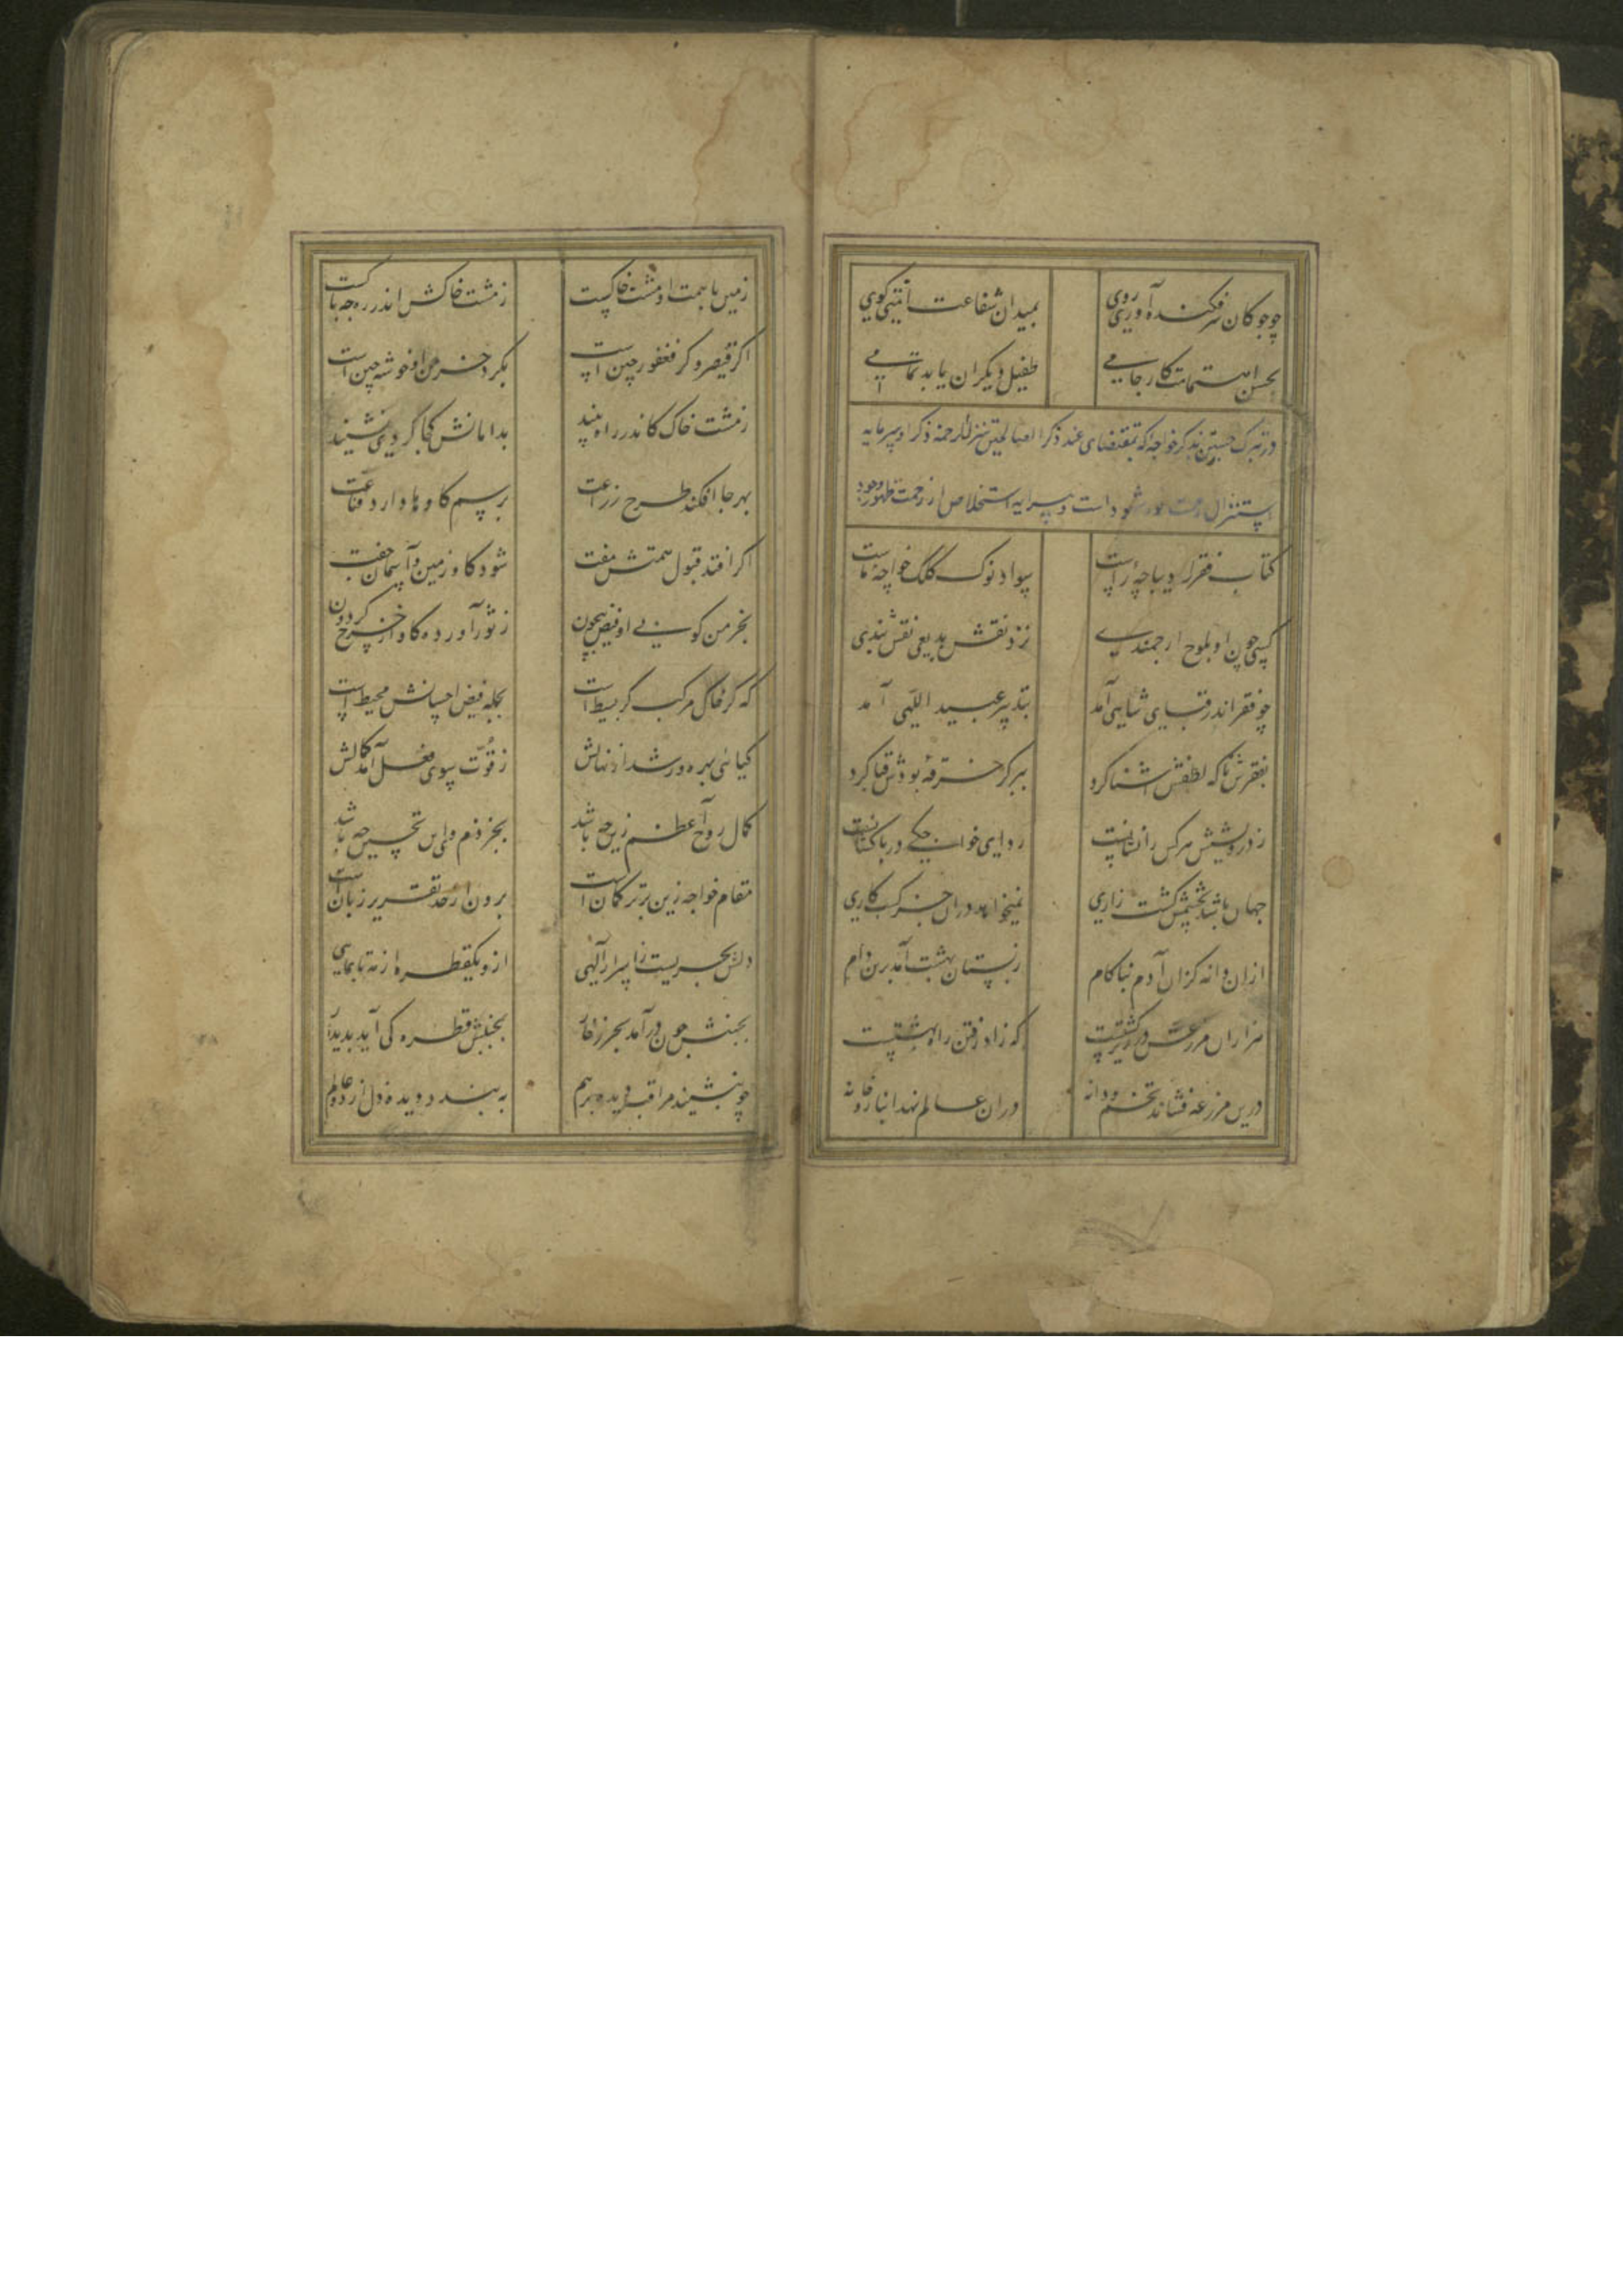 چو چوکان سر فکنده آوری روی بمیدان شفاعت امتی کوی
بحسن اهتمامت کار جامی طفیل دیکران یابد تمامی
در تبرک جستن بذکر خواجه که بمقتضای عند ذکر الصالحین تنزل الرحمة ذکر او سرمایه
استنزال رحمت شهود است و پیرایه استخلاص از زحمت ظهور وجود
کتاب فقر را دیباچه راست سواد نوک کلک خواجهٔ ماست
کسی چون او بلوح ارجمندی نزد نقش بدیعی نقش بندی
چو فقر اندر قبای شاهی آمد بتدبیر عبید اللهی آمد
بفقرش تا که لطفش اشنا کرد ببر کر خرقهٔ بودش قبا کرد
ز درویشیش هر کس را نشانیست ردای خواجکی در پا کشانیست
جهان باشد بچشمش کشت زاری نمیخواهد دران جز کسب کاری
ازان دانه کزان آدم نباکام زبستان بهشت آمد برین دام
هزاران مزرعش در زیر کشتست که زاد رفتن راه بهشتست
درین مزرعه فشاند تخم و دانه دران عالم نهد انبارخانه
زمین با همت او مشت خاکیست ز مشت خاکش اندر ره چه باکست
اکر قیصر و کر فغفور چین است بکرد خرمن او خوشه چین است
زمشت خاک کاندر راه بیند بدامانش کجا کردی نشیند
بهر جا افکند طرح زراعت برسم کاوها دارد قناعت
اکر افتد قبول همتش مفت شود کاو زمین و آسمان جفت
بخرمن کوبی او فیض بیچون ز ثور آورده کاو از چرخ کردون
که کر خاک مرکب کر بسیط است بجمله فیض احسانش محیط است
کیائی بهره ور شد از نهالش ز قوت سوی فعل آمد کمالش
کمال روح اعظم زین چه باشد بجز ذم وای این تحسین چه باشد
مقام خواجه زین برتر کمان است برون از حد تقریر زبان است
دلش بحریست ز اسرار آلهی ازو یکقطره از مه تا بماهی
بجنبش چون درآمد بحر زخار بجنبش قطره کی آید پدیدار
چو بنشیند مراقب دیده برهم به بندد دیدهٔ دل از دو عالم